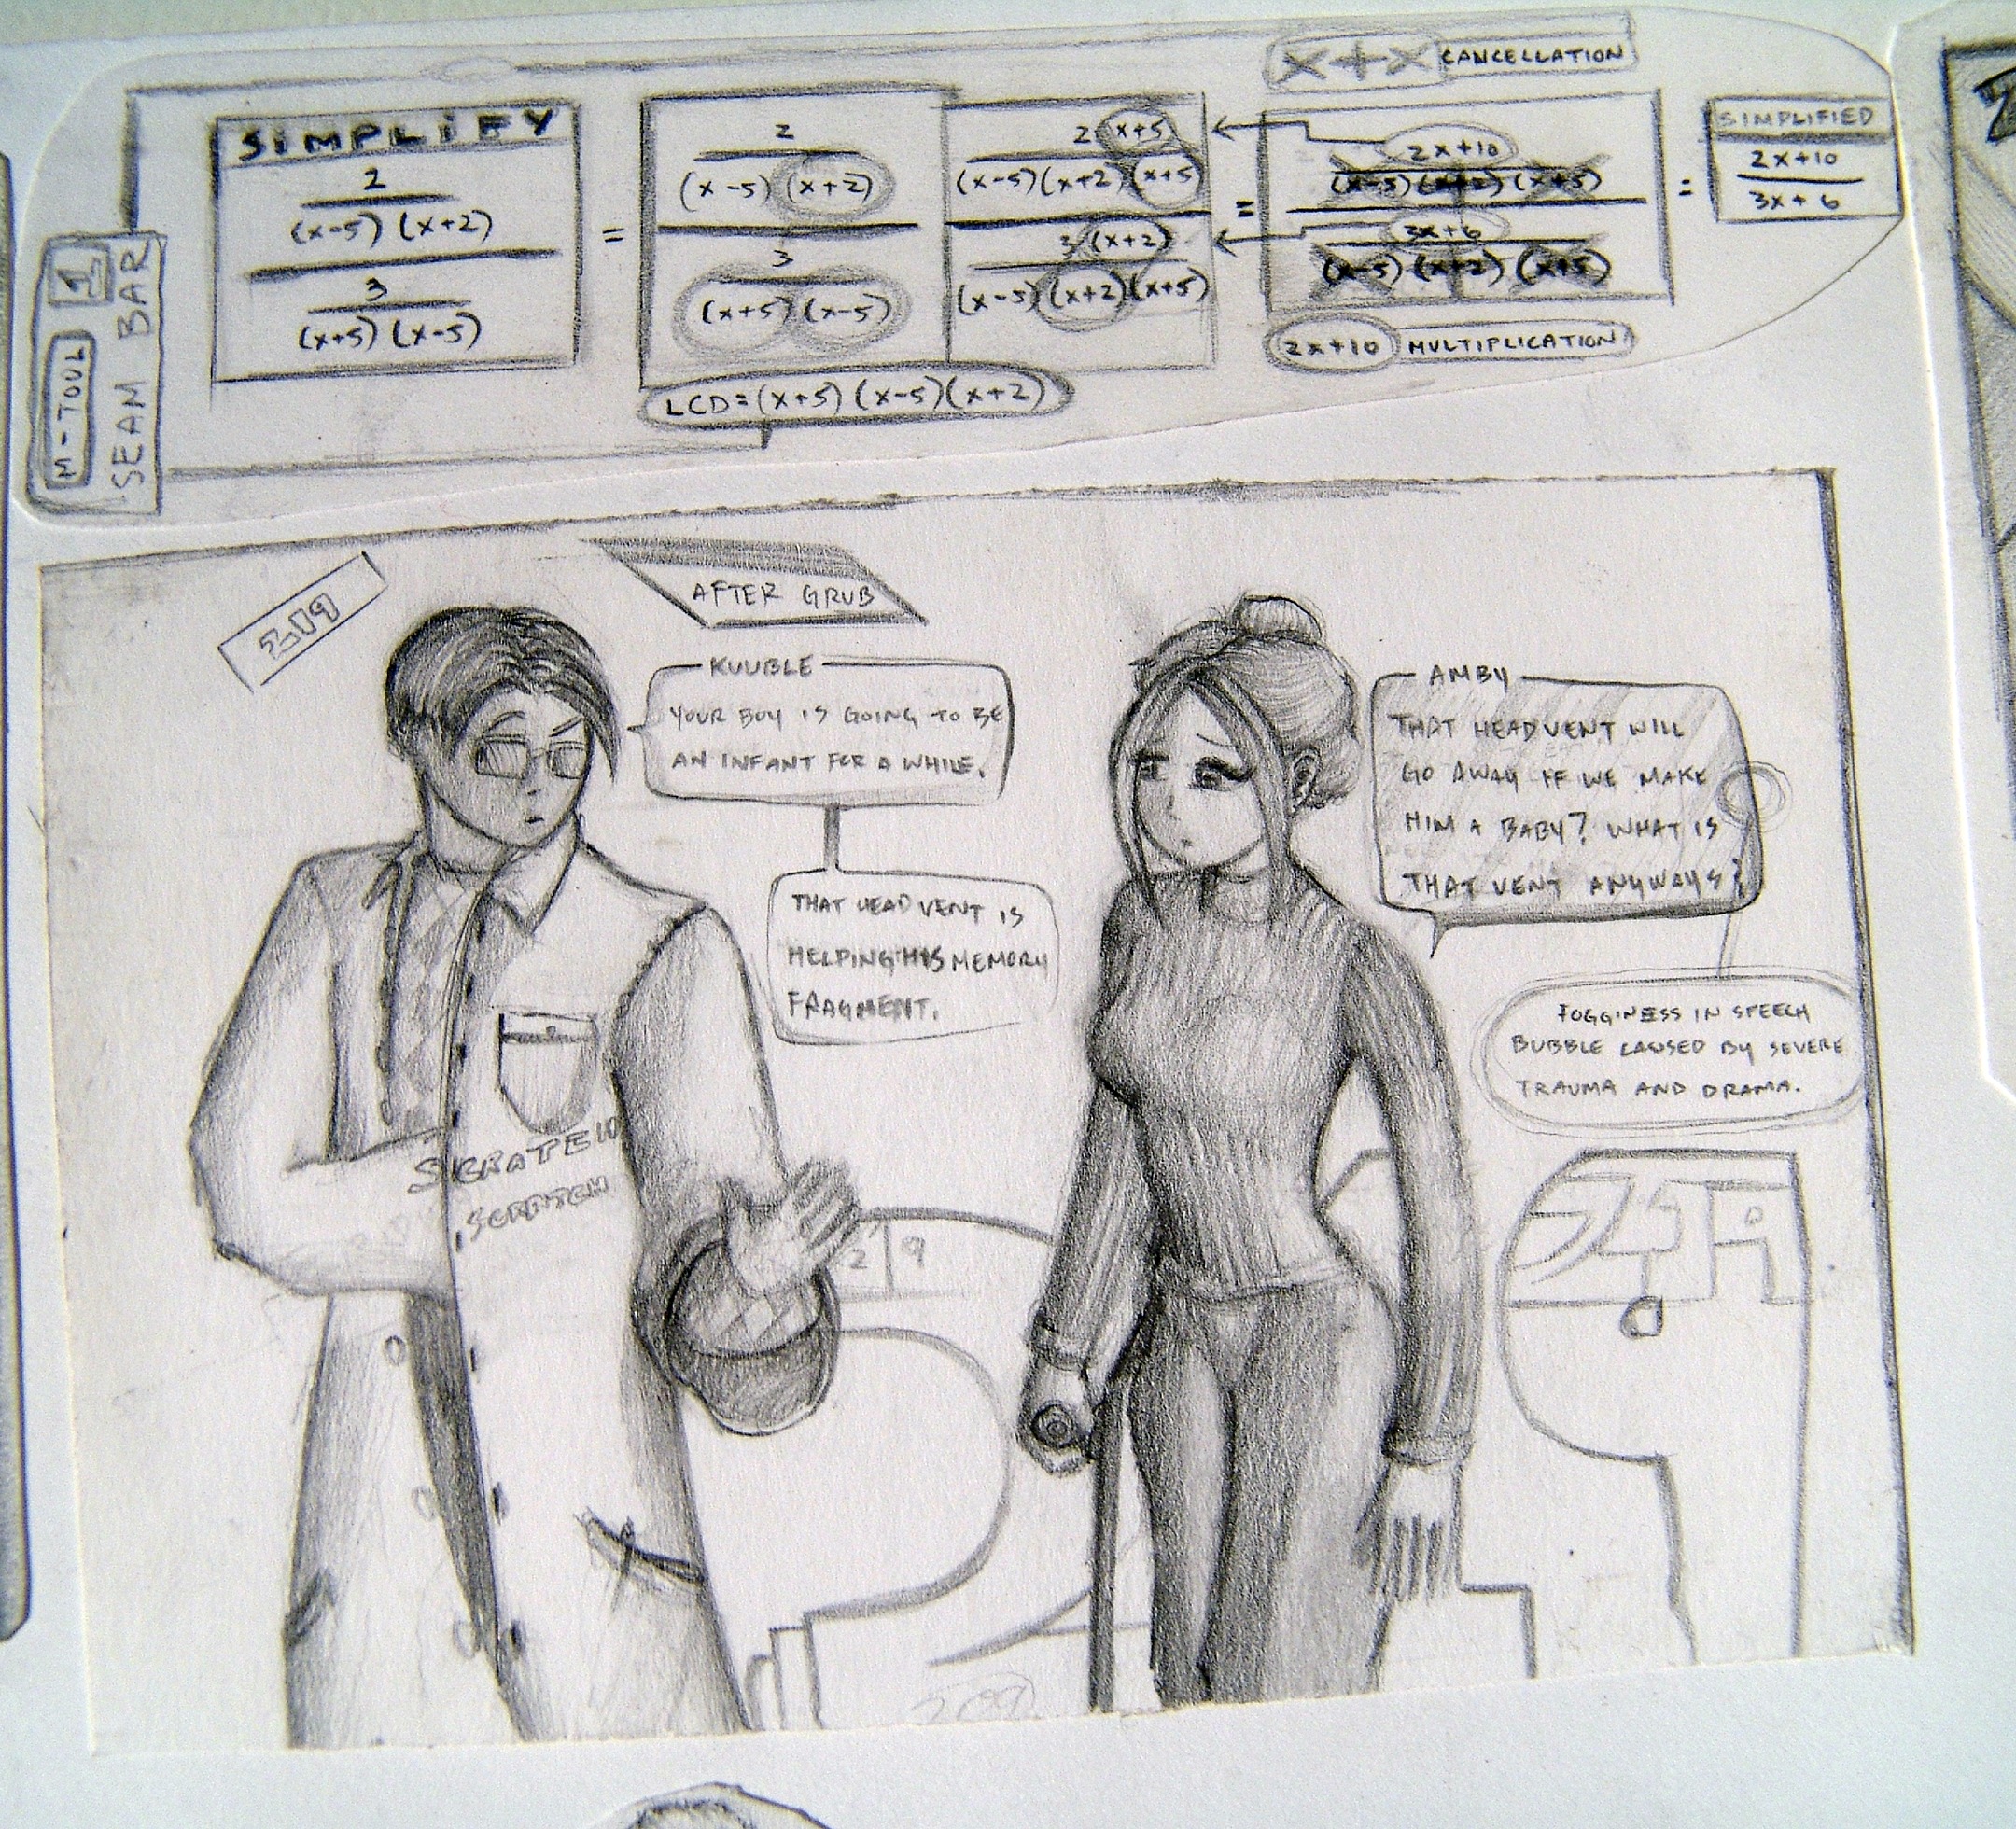 X+X CANCELLATION
SIMPLIFY
2
(x-5) (x+2)
3
(x+5) (x-5)
=
2
(x-5) (x+2)
3
(x+5) (x-5)
2 (x+5)
(x-5)(x+2)(x+5)
3 (x+2)
(x-5)(x+2)(x+5)
=
2x+10
(x-5)(x+2)(x+5)
3x+6
(x-5)(x+2)(x+5)
=
SIMPLIFIED
2x+10
3x+6
2x+10 MULTIPLICATION
LCD=(x+5)(x-5)(x+2)
M-TOUL 1
SEAM BAR
219
AFTER GRUB
KUUBLE
YOUR BOY IS GOING TO BE
AN INFANT FOR A WHILE.
THAT HEAD VENT IS
HELPING HIS MEMORY
FRAGMENT.
AMBY
THAT HEADVENT WILL
GO AWAY IF WE MAKE
HIM A BABY? WHAT IS
THAT VENT ANYWAYS?
FOGGINESS IN SPEECH
BUBBLE CAUSED BY SEVERE
TRAUMA AND DRAMA.
SCRATCH
2 9